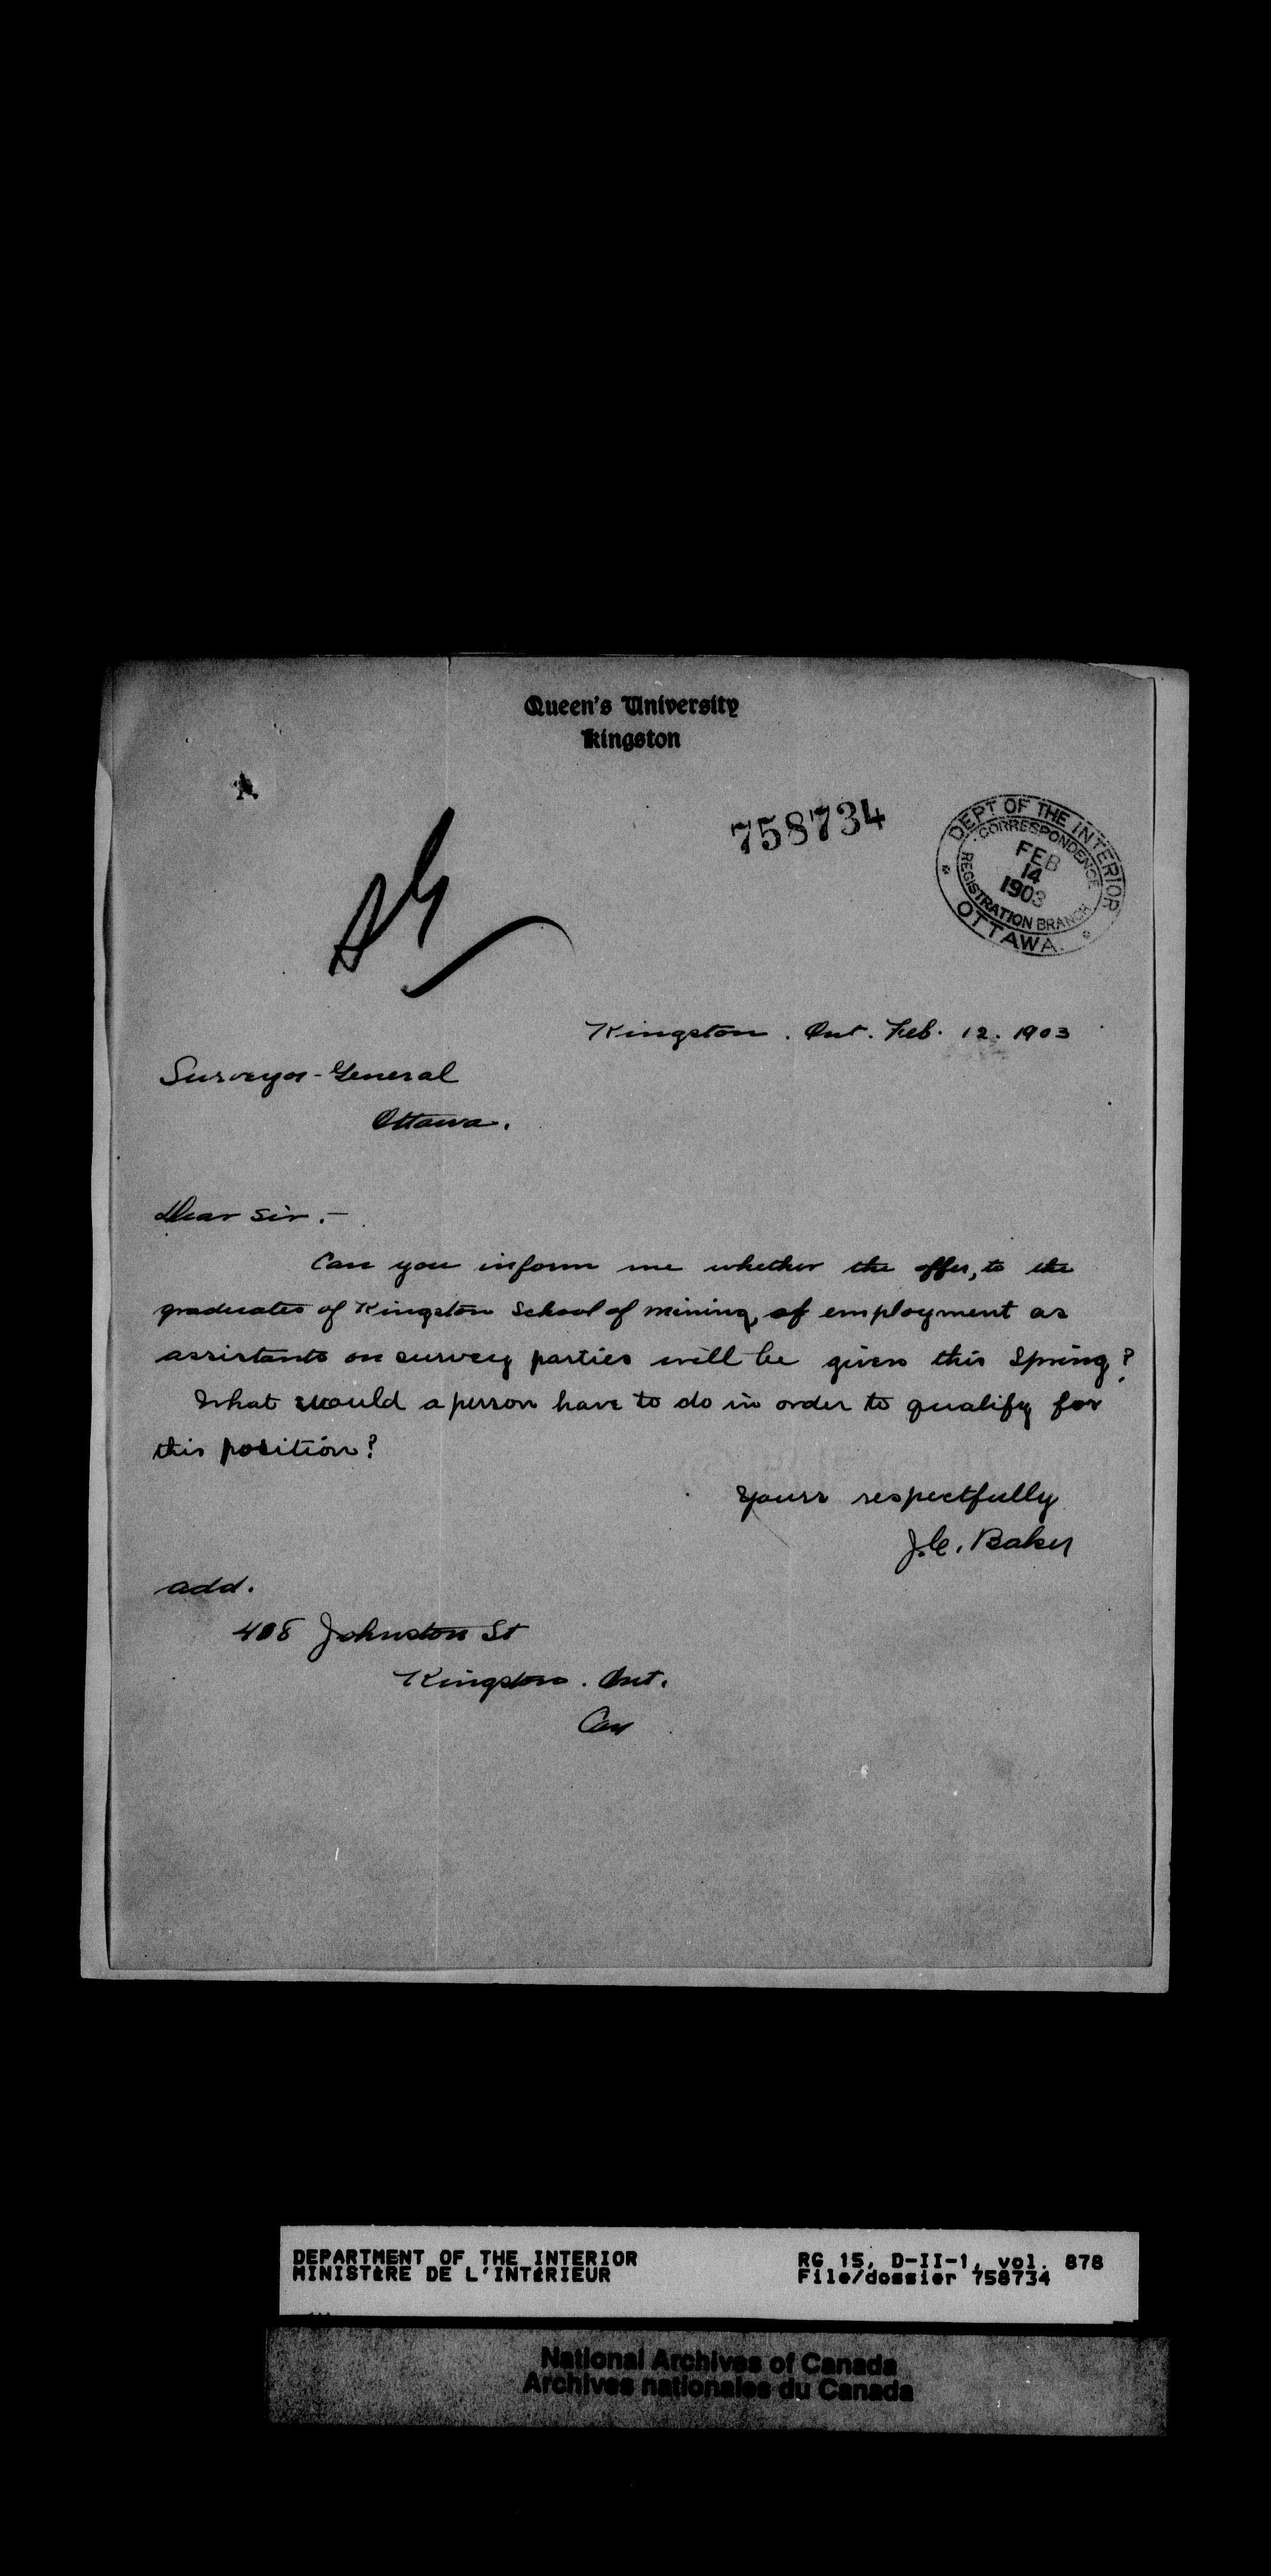 Queen's University
Kingston
758734
DEPT OF THE INTERIOR
CORRESPONDENCE
FEB
14
1903
REGISTRATION BRANCH
OTTAWA.
SG
Kingston. Ont. Feb. 12. 1903
Surveyor-General
Ottawa.
Dear Sir.-
Can you inform me whether the offer, to the
graduates of Kingston School of Mining, of employment as
assistants on survey parties will be given this Spring?
What would a person have to do in order to qualify for
this position?
Yours respectfully
J.C. Baker
add.
408 Johnston St
Kingston. Ont.
Can
DEPARTMENT OF THE INTERIOR
MINISTÈRE DE L'INTÉRIEUR
RG 15, D-II-1, vol. 878
File/dossier 758734
National Archives of Canada
Archives nationales du Canada